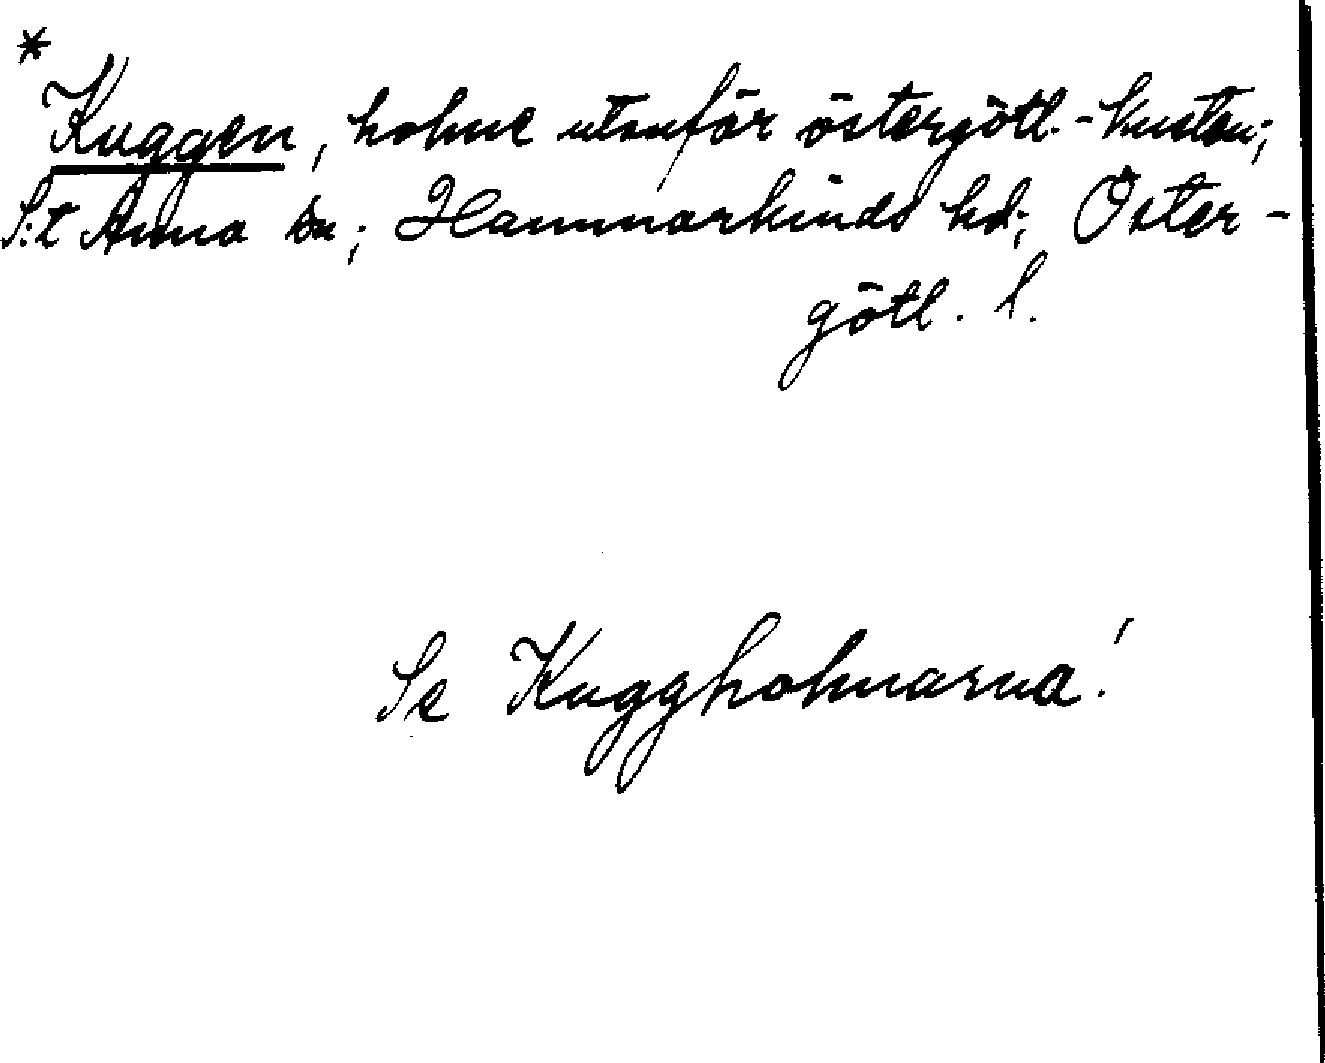 *
Kuggen, holme utanför östergötl.-kusten;
S:t Anna sn; Hammarkinds hd; Öster-
götl. l.
Se Kuggholmarna!